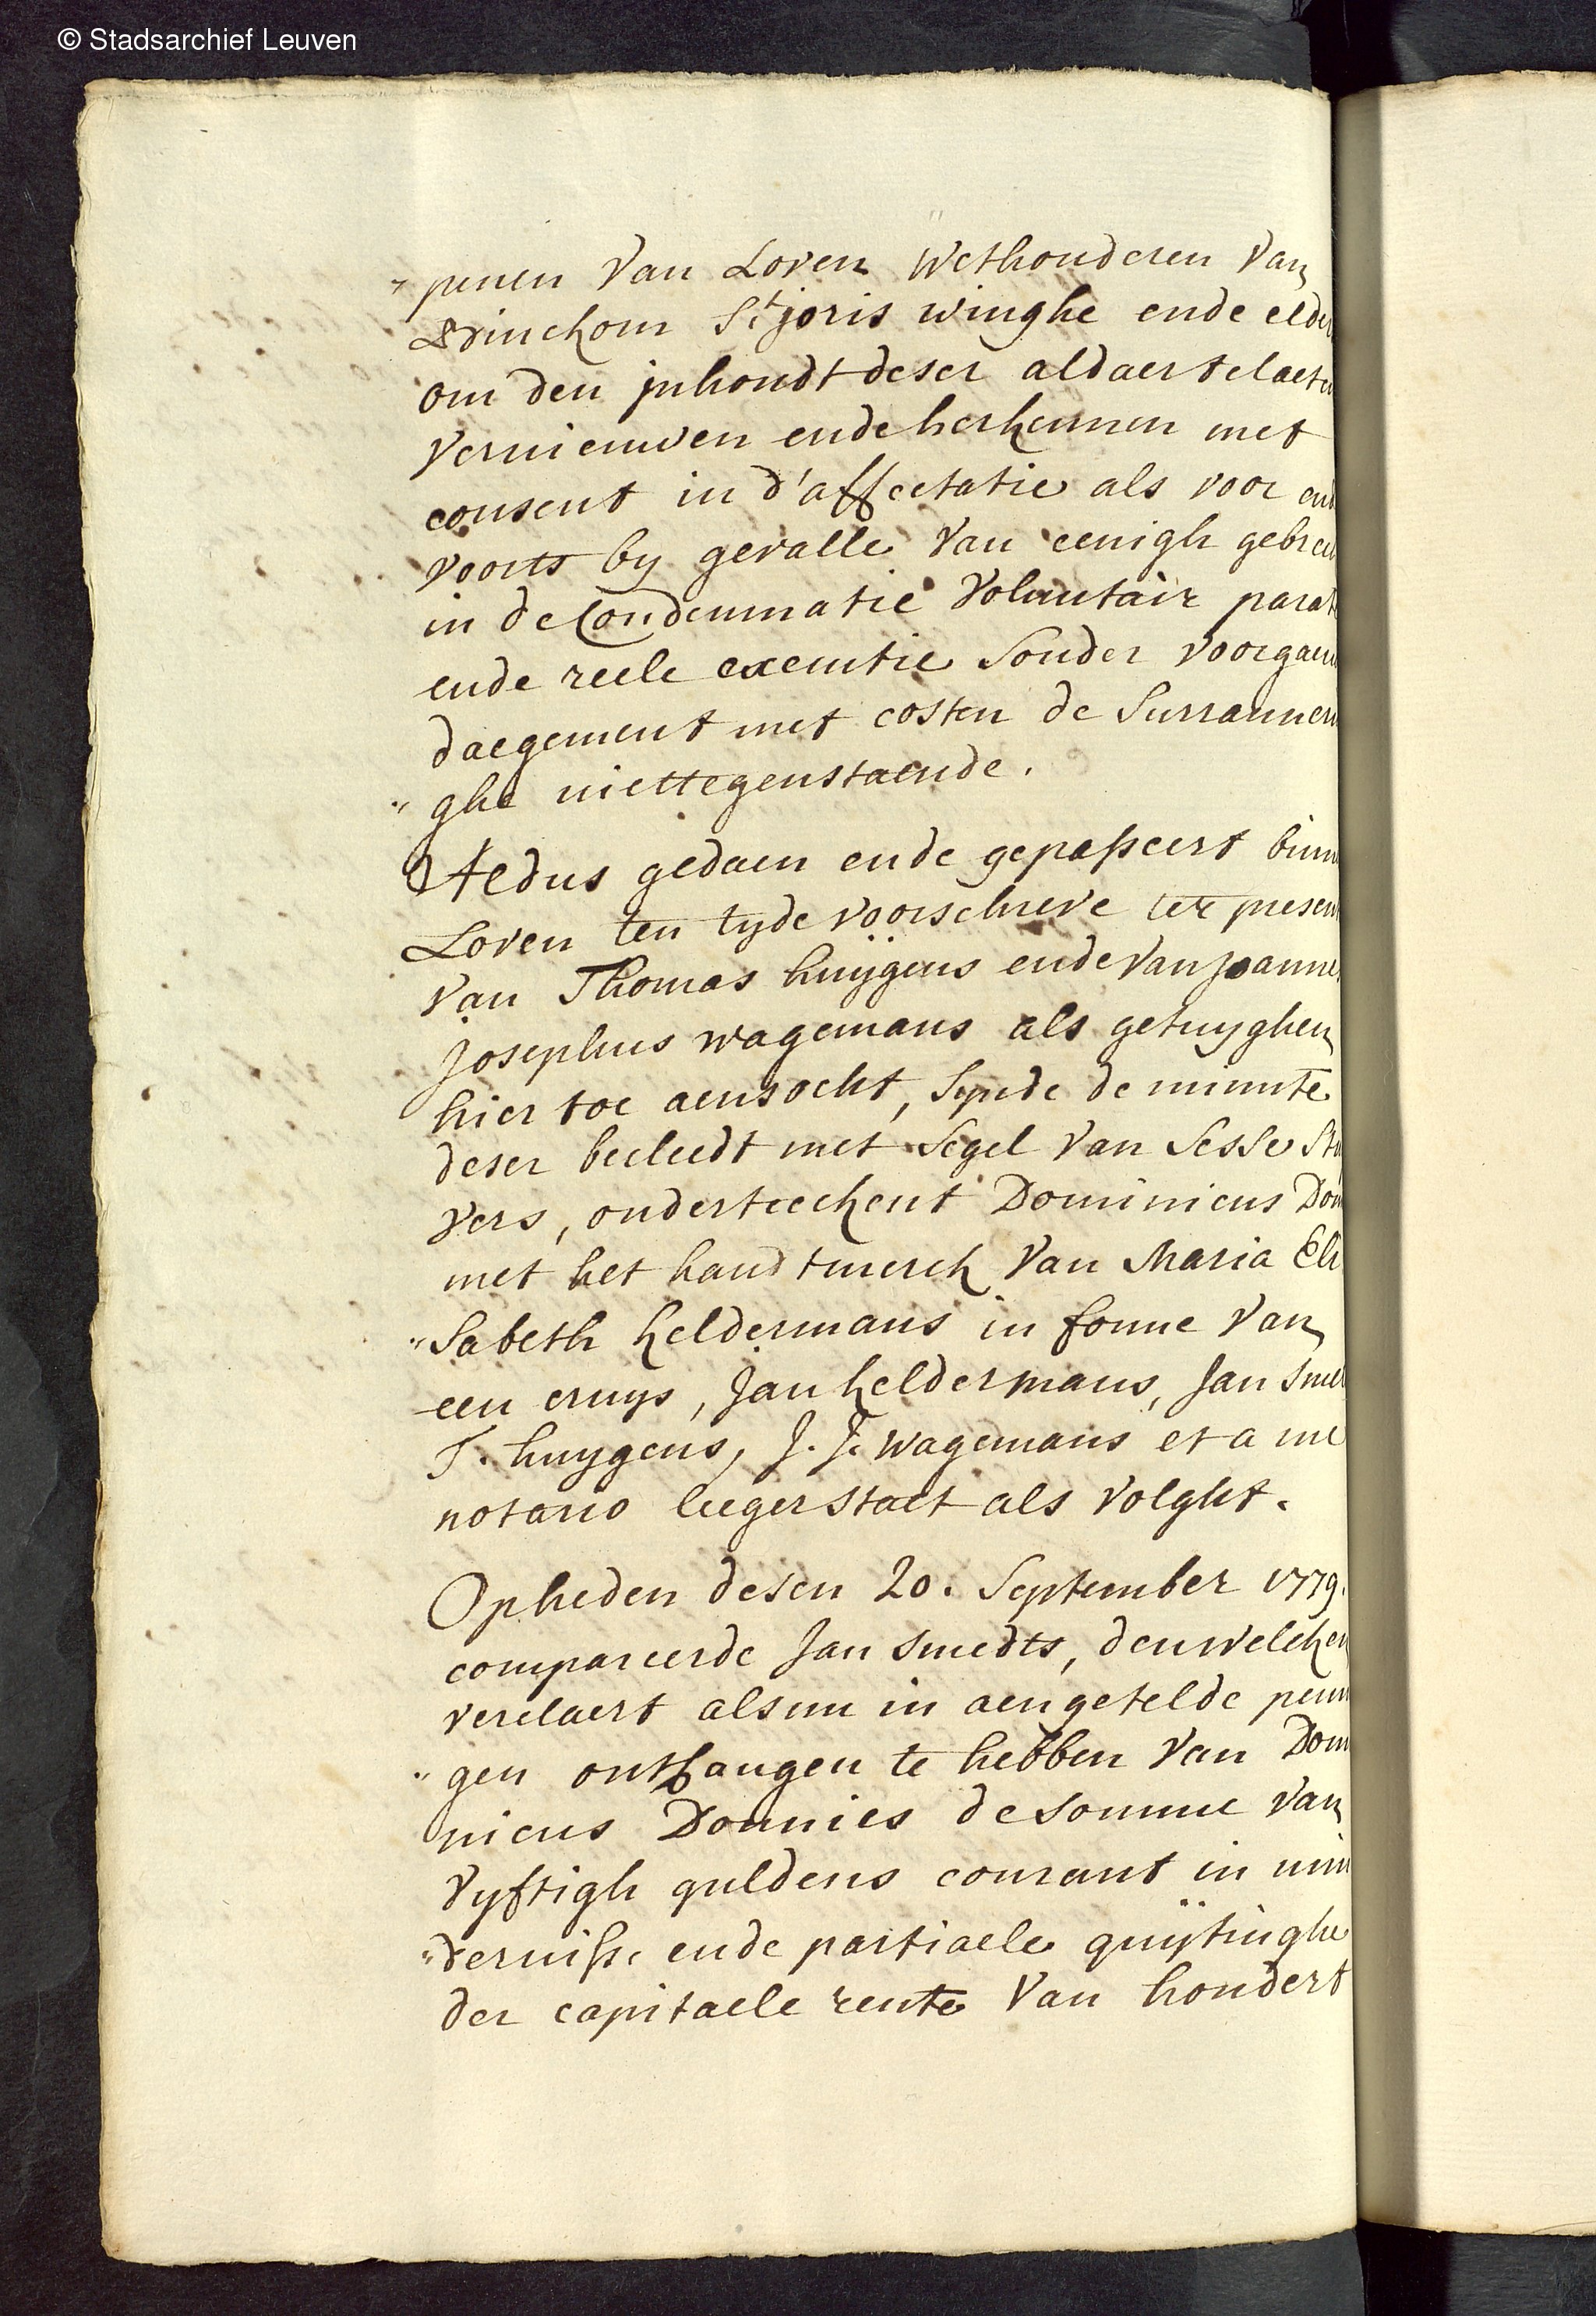 © Stadsarchief Leuven
"penen Van Loven Wethouderen Van
Winckom St joris winghe ende elder
om den jnhoudt deser aldaer te laeten
Vernieuwen ende herkennen met
consent in d'affectatie als voor end
voorts by gevalle Van eenigh gebreck
in de Condemnatie Volontair parat
ende reele executie Sonder voorgaen
daegement met costen de Surranneri
"ghe niettegenstaende.
Aldus gedaen ende gepasseert binn
Loven ten tyde voorschreve ter presen
Van Thomas huijgens ende Van joannes
josephus wagemans als getuyghen
hier toe aensocht, Synde de minute
deser becleedt met Segel Van Sesse Stu
vers, onderteeckent Dominicus Dom
met het handtmerck Van Maria Eli
"Sabeth keldermans in forme Van
een cruys, Jan keldermans, Jan Smed
T. huygens, J. J. wagemans et a me
notario leegerstaet als volght.
Opheden desen 20. September 1779.
compareerde Jan Smedts, denwelcken
verclaert alsnu in aengetelde penn
"gen ontfangen te hebben Van Dom
nicus Donnies de somme Van
Vyftigh guldens courant in min
"dernisse ende partiaele quijtinghe
der capitaele rente Van hondert